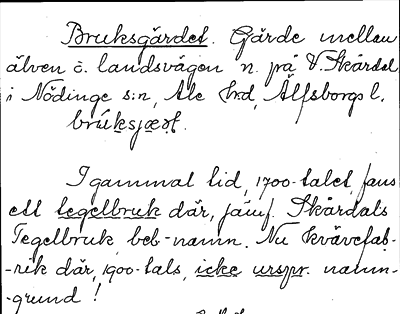 Bruksgärdet. Gärde mellan
älven o. landsvägen n. på V. Skårdal
i Nödinge s:n, Ale hrd, Älfsborgs l.
I gammal tid, 1700-talet, fans
ett tegelbruk där, jämf. Skårdals
Tegelbruk, beb-namn. Nu kväfvefab-
-rik där, 1900-tals, icke urspr. namn-
-grund!